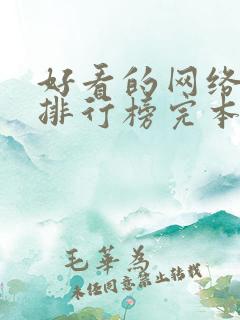 好看的网络
排行榜完本
毛华为
未经同意禁止转载